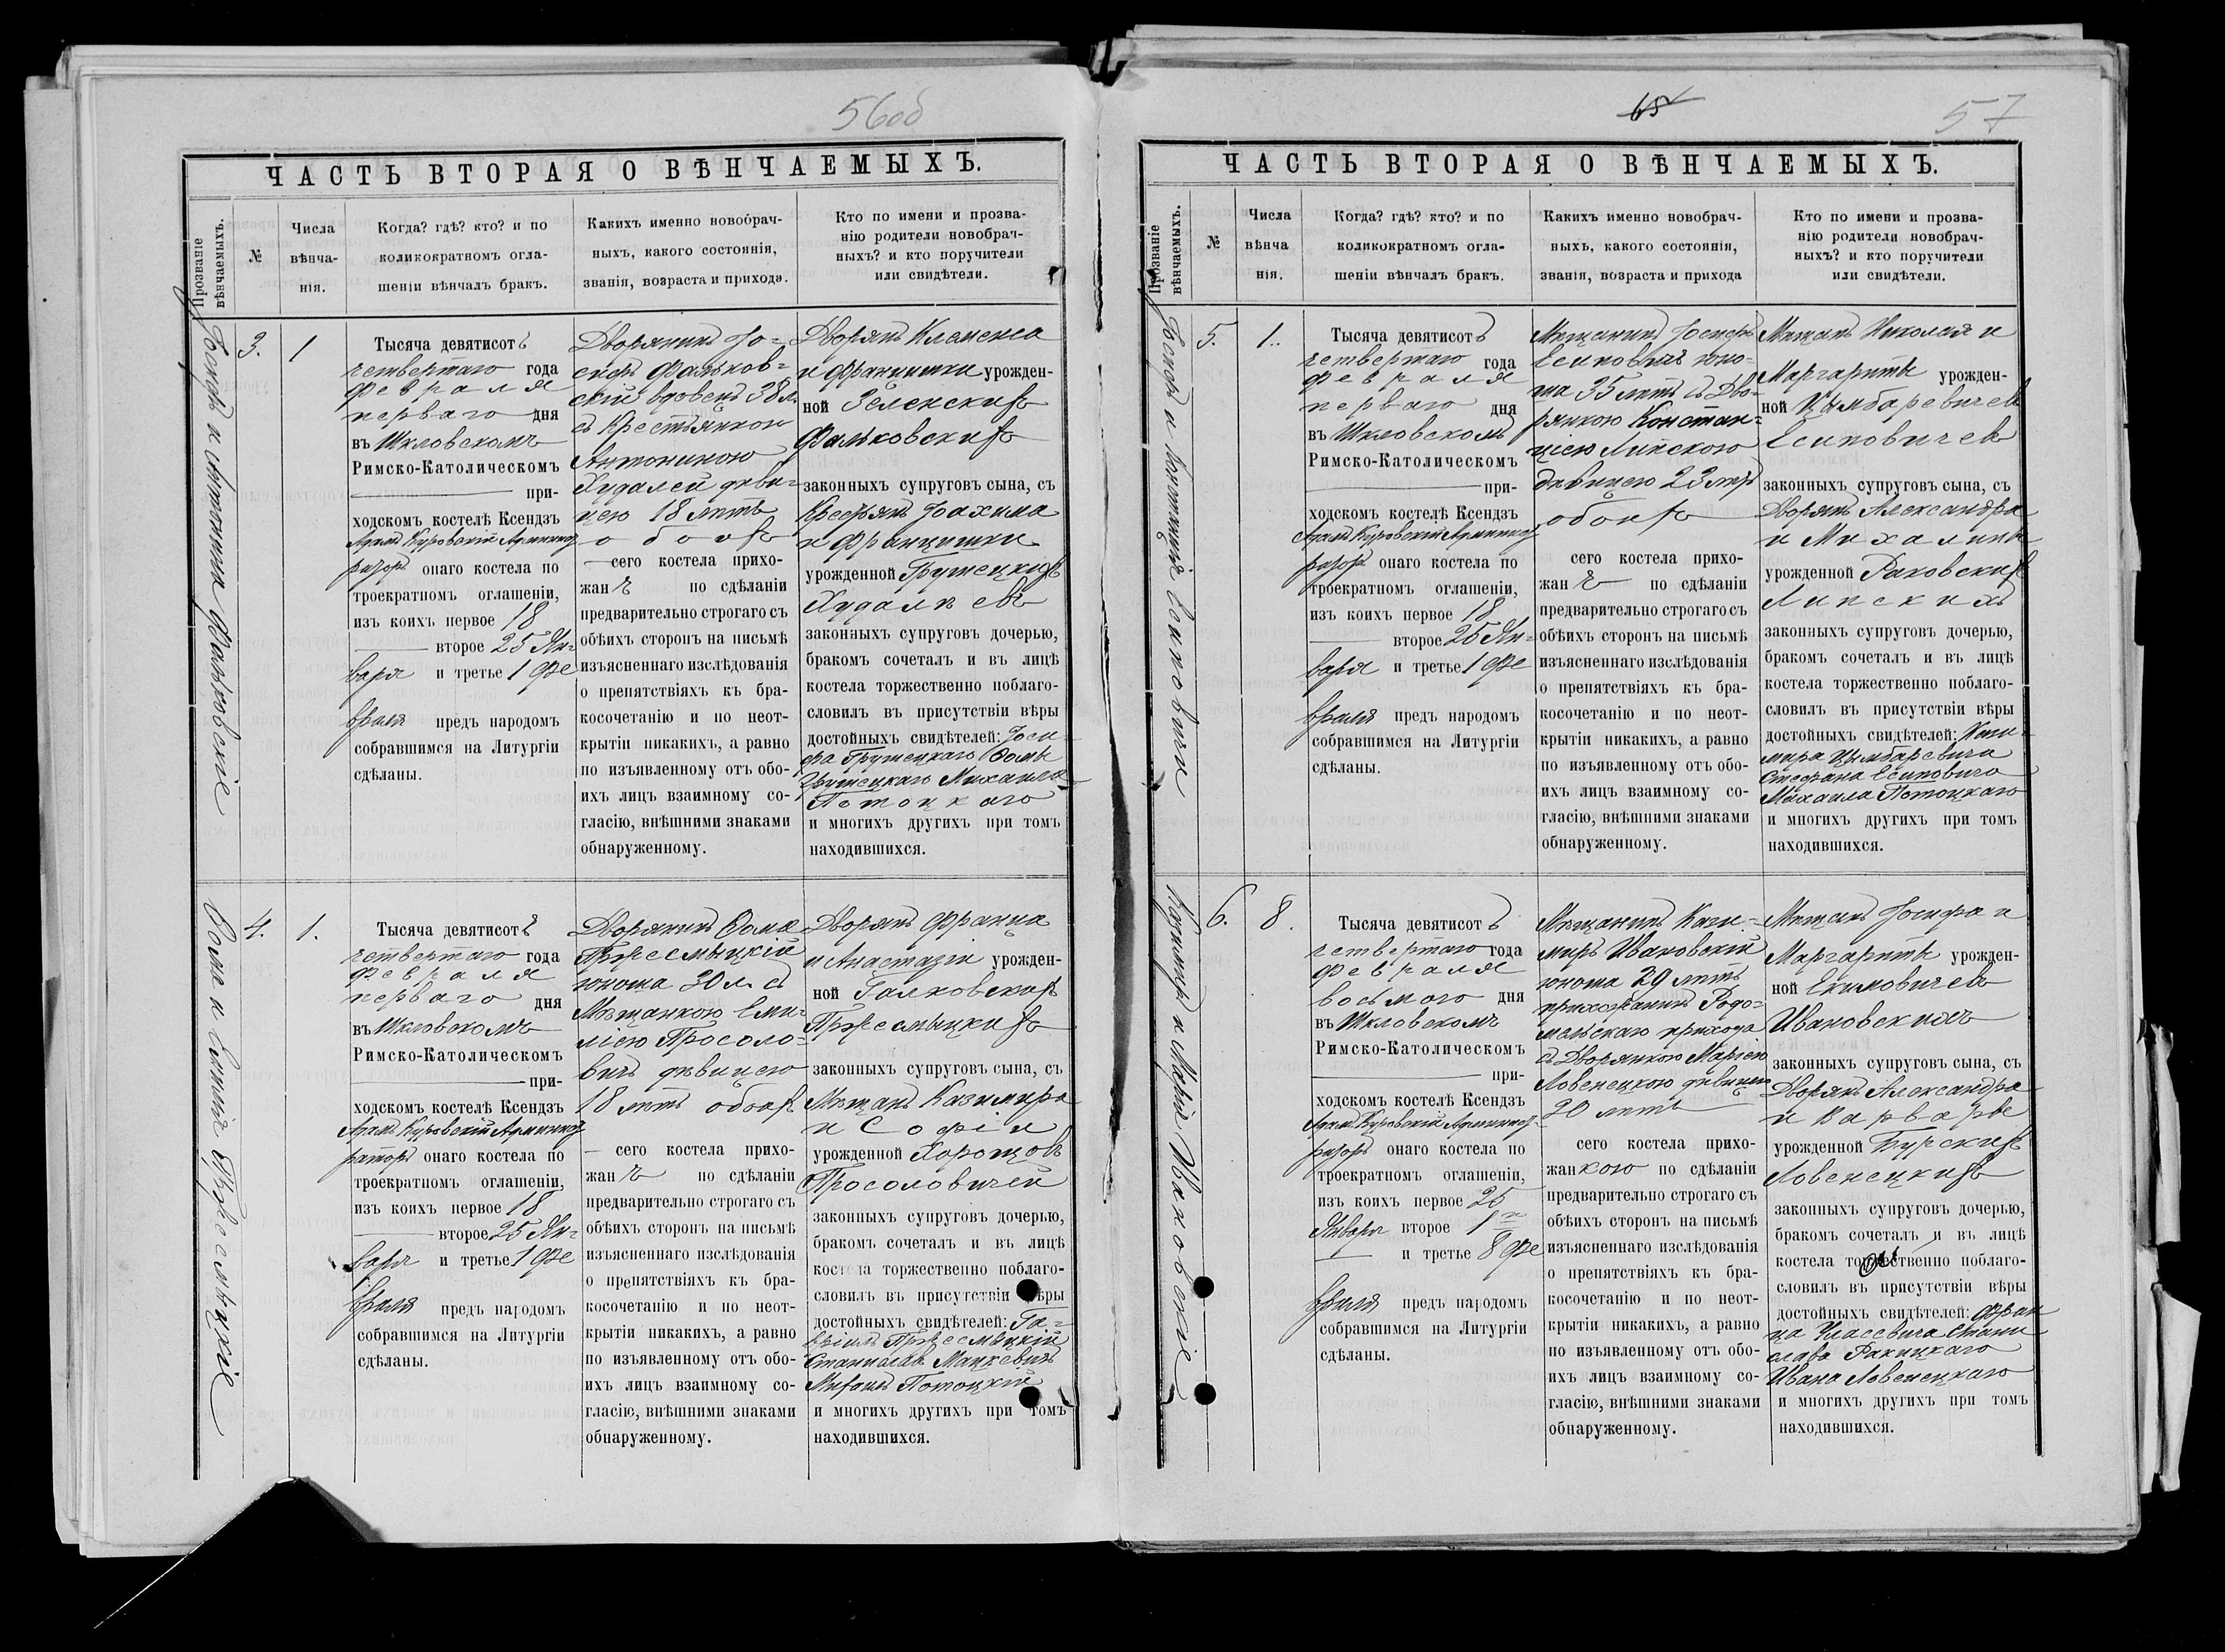 56об
ЧАСТЬ ВТОРАЯ О ВѢНЧАЕМЫХЪ.
Прозваніе
вѣнчаемыхъ.
№
Числа
вѣнча-
нія.
Когда? гдѣ? кто? и по
коликократномъ огла-
шеніи вѣнчалъ бракъ.
Какихъ именно новобрач-
ныхъ, какого состоянія,
званія, возраста и прихода.
Кто по имени и прозва-
нію родители новобрач-
ныхъ? и кто поручители
или свидѣтели.
Іосифъ и Антонина Фальковскіе
3.
1
Тысяча девятисотъ
четвертаго года
Февраля
перваго дня
въ Шкловскомъ
Римско-Католическомъ
при-
ходскомъ костелѣ Ксендзъ
Адамъ Куровскій Админист
раторъ онаго костела по
троекратномъ оглашеніи,
изъ коихъ первое 18
второе 25 Ян-
варя и третье 1 Фе
враля предъ народомъ
собравшимся на Литургіи
сдѣланы.
Дворянинъ Іо-
сифъ Фальков-
скій вдовецъ 38 л.
съ Крестьянкою
Антониною
Худалей дѣви-
цею 18 лѣтъ
обоихъ
сего костела прихо-
жанъ по сдѣланіи
предварительно строгаго съ
обѣихъ сторонъ на письмѣ
изъясненнаго изслѣдованія
о препятствіяхъ къ бра-
косочетанію и по неот-
крытіи никакихъ, а равно
по изъявленному отъ обо-
ихъ лицъ взаимному со-
гласію, внѣшними знаками
обнаруженному.
Дворянъ Клеменса
и Францишки урожден-
ной Зеленскихъ
Фальковскихъ
законныхъ супруговъ сына, съ
Крестьянъ Іоахима
и Францишки
урожденной Грушецкихъ
Худалѣевъ
законныхъ супруговъ дочерью,
бракомъ сочеталъ и въ лицѣ
костела торжественно поблаго-
словилъ въ присутствіи вѣры
достойныхъ свидѣтелей: Іоси
фа Грушецкаго Ѳомы
Грушецкаго Михаила
Потоцкаго
и многихъ другихъ при томъ
находившихся.
4.
1.
Тысяча девятисотъ
четвертаго года
Февраля
перваго дня
въ Шкловскомъ
Римско-Католическомъ
при-
ходскомъ костелѣ Ксендзъ
Адамъ Куровскій Админист
раторъ онаго костела по
троекратномъ оглашеніи,
изъ коихъ первое 18
второе 25 Ян-
варя и третье 1 Фе
враля предъ народомъ
собравшимся на Литургіи
сдѣланы.
Дворянинъ Ѳома
Пржесмыцкій
юноша 30 л. съ
Мѣщанкою Еми-
ліею Просоло-
вичъ дѣвицею
18 лѣтъ обоихъ
сего костела прихо-
жанъ по сдѣланіи
предварительно строгаго съ
обѣихъ сторонъ на письмѣ
изъясненнаго изслѣдованія
о препятствіяхъ къ бра-
косочетанію и по неот-
крытіи никакихъ, а равно
по изъявленному отъ обо-
ихъ лицъ взаимному со-
гласію, внѣшними знаками
обнаруженному.
Дворянъ Франца
и Анастазіи урожден-
ной Галковскихъ
Пржесмыцкихъ
законныхъ супруговъ сына, съ
Мѣщанъ Казимира
и Софіи
урожденной Хорощовъ
Просоловичей
законныхъ супруговъ дочерью,
бракомъ сочеталъ и въ лицѣ
костела торжественно поблаго-
словилъ въ присутствіи вѣры
достойныхъ свидѣтелей: Га-
вріилъ Пржесмыцкій
Станиславъ Мацкевичъ
Михаилъ Потоцкій
и многихъ другихъ при томъ
находившихся.
65
57
ЧАСТЬ ВТОРАЯ О ВѢНЧАЕМЫХЪ.
Прозваніе
вѣнчаемыхъ.
№
Числа
вѣнча
нія.
Когда? гдѣ? кто? и по
коликократномъ огла-
шеніи вѣнчалъ бракъ.
Какихъ именно новобрач-
ныхъ, какого состоянія,
званія, возраста и прихода
Кто по имени и прозва-
нію родители новобрач-
ныхъ? и кто поручители
или свидѣтели.
5.
1..
Тысяча девятисотъ
четвертаго года
Февраля
перваго дня
въ Шкловскомъ
Римско-Католическомъ
при-
ходскомъ костелѣ Ксендзъ
Адамъ Куровскій Админист
раторъ онаго костела по
троекратномъ оглашеніи,
изъ коихъ первое 18
второе 25 Ян-
варя и третье 1 Фе
враля предъ народомъ
собравшимся на Литургіи
сдѣланы.
Мѣщанинъ Іосифъ
Есиповичъ юно-
ша 35 лѣтъ съ Дво-
рянкою Констан-
ціею Липскою
дѣвицею 23 лѣтъ
обоихъ
сего костела прихо-
жанъ по сдѣланіи
предварительно строгаго съ
обѣихъ сторонъ на письмѣ
изъясненнаго изслѣдованія
о препятствіяхъ къ бра-
косочетанію и по неот-
крытіи никакихъ, а равно
по изъявленному отъ обо-
ихъ лицъ взаимному со-
гласію, внѣшними знаками
обнаруженному.
Мѣщанъ Николая и
Маргариты урожден-
ной Цымбаревичевъ
Есиповичевъ
законныхъ супруговъ сына, съ
Дворянъ Александра
и Михалины
урожденной Раковскихъ
Липскихъ
законныхъ супруговъ дочерью,
бракомъ сочеталъ и въ лицѣ
костела торжественно поблаго-
словилъ въ присутствіи вѣры
достойныхъ свидѣтелей:
мира Цымбаревича
Стефана Есиповича
Михаила Потоцкаго
и многихъ другихъ при томъ
находившихся.
Казимиръ и Марія Ивановскіе
6.
8.
Тысяча девятисотъ
четвертаго года
Февраля
восьмого дня
въ Шкловскомъ
Римско-Католическомъ
при-
ходскомъ костелѣ Ксендзъ
Адамъ Куровскій Админист-
раторъ онаго костела по
троекратномъ оглашеніи,
изъ коихъ первое 25
Января второе 1
и третье 8 Фе
враля предъ народомъ
собравшимся на Литургіи
сдѣланы.
Мѣщанинъ Кази-
миръ Ивановскій
юноша 29 лѣтъ
прихожанинъ Радо-
мльскаго прихода
съ Дворянкою Маріею
Ловенецкою дѣвицею
20 лѣтъ
сего костела прихо-
жанкою по сдѣланіи
предварительно строгаго съ
обѣихъ сторонъ на письмѣ
изъясненнаго изслѣдованія
о препятствіяхъ къ бра-
косочетанію и по неот-
крытіи никакихъ, а равно
по изъявленному отъ обо-
ихъ лицъ взаимному со-
гласію, внѣшними знаками
обнаруженному.
Мѣщанъ Іосифа и
Маргариты урожден-
ной Екимовичевъ
Ивановскихъ
законныхъ супруговъ сына, съ
Дворянъ Александра
и Варвары
урожденной Бурскихъ
Ловенецкихъ
законныхъ супруговъ дочерью,
бракомъ сочеталъ и въ лицѣ
костела торжественно поблаго-
словилъ въ присутствіи вѣры
достойныхъ свидѣтелей: Фран
ца Стани
слава Ракицкаго
Ивана Ловенецкаго
и многихъ другихъ при томъ
находившихся.